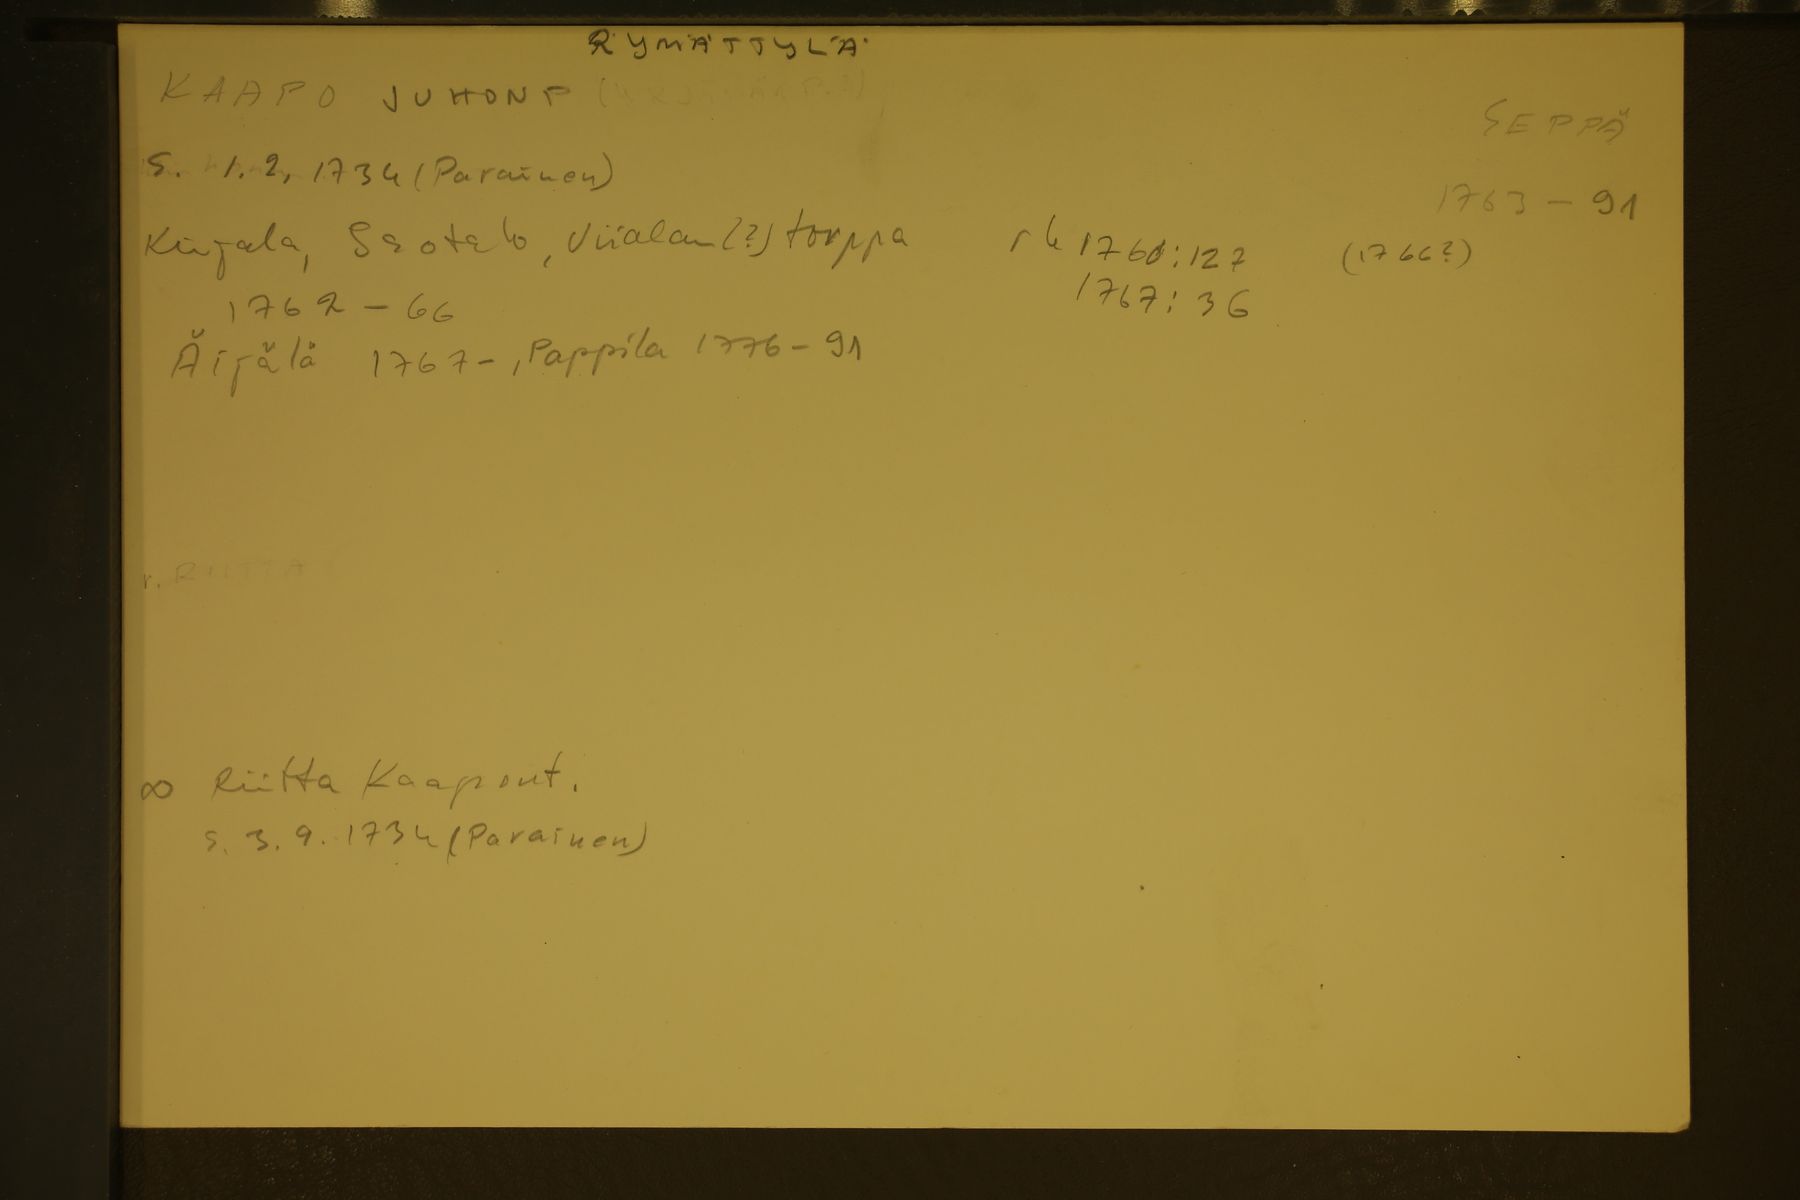 RYMÄTTYLÄ
KAAPO JUHONP
SEPPÄ
S. 1.2, 1734 (Parainen)
1763 - 91
Kirjala, Saotalo, Viialan (?) torppa rk 1760:127 (1766?)
1762 - 66 1767: 36
Äijälä 1767-, Pappila 1776 - 91
v. RIITTA
∞ Riitta Kaapont.
s. 3.9. 1734 (Parainen)